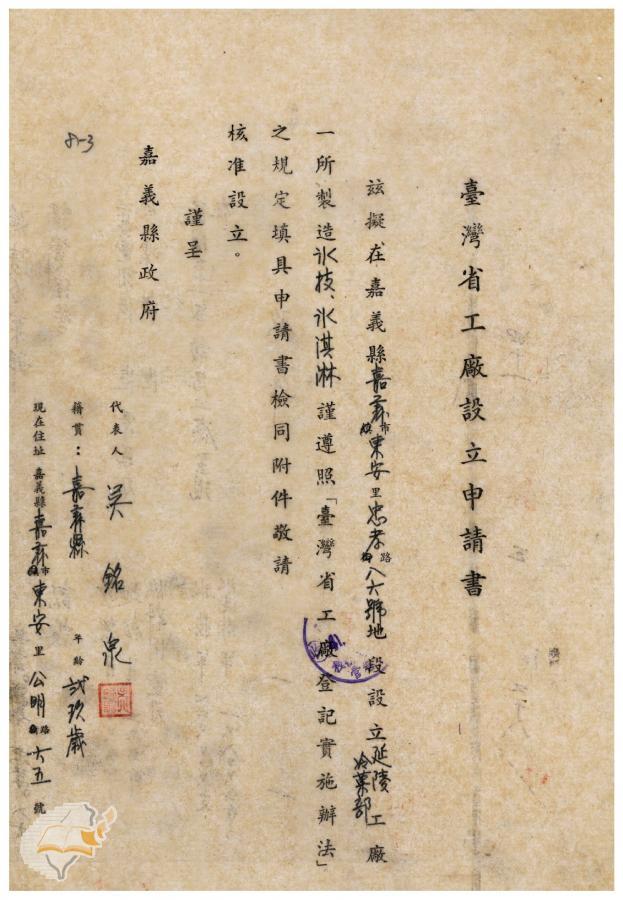 臺灣省工廠設立申請書
玆擬在嘉義縣嘉義市鎮東安里忠孝路街八六號地段設立延陵冷菓部工廠
一所製造氷技、氷淇淋謹遵照「臺灣省工廠登記實施辦法」
之規定填具申請書檢同附件敬請
核准設立。
謹呈
嘉義縣政府
8-3
代表人 吳銘泉
籍貫：嘉義縣 年齡 弍玖歲
現在住址 嘉義縣嘉義市鎮東安里公明路街六五號